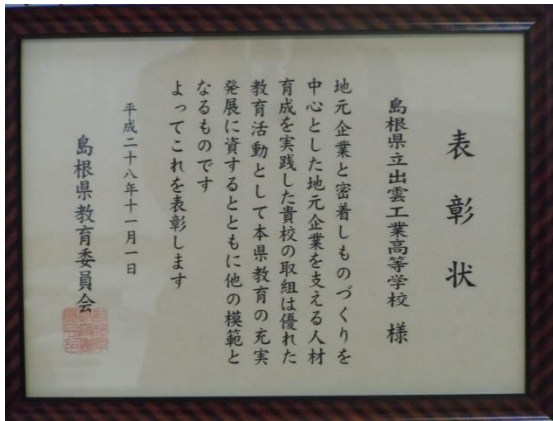 表彰状
島根県立出雲工業高等学校 様
地元企業と密着しものづくりを
中心とした地元企業を支える人材
育成を実践した貴校の取組は優れた
教育活動として本県教育の充実
発展に資するとともに他の模範と
なるものです
よってこれを表彰します
平成二十八年十一月一日
島根県教育委員会